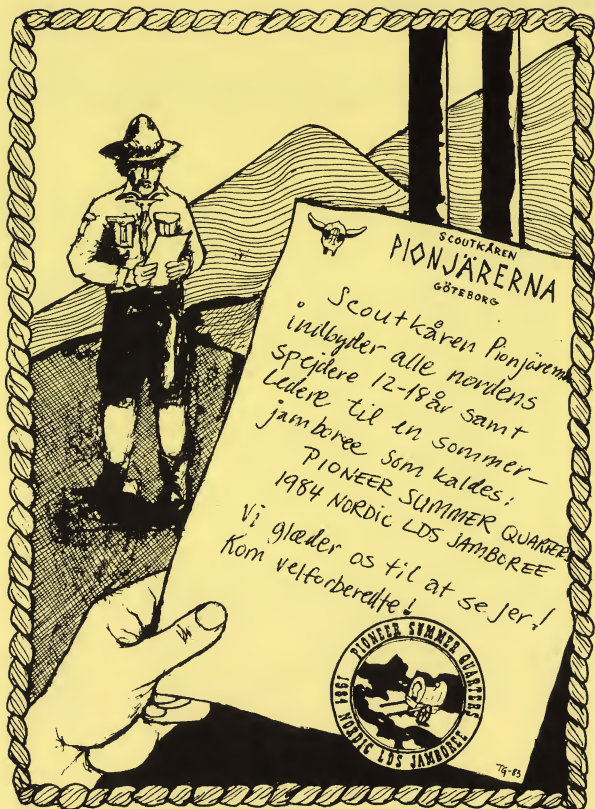 SCOUTKÅREN
PIONJÄRERNA
GÖTEBORG
Scoutkåren Pionjärerna
indbyder alle nordens
spejdere 12-18 år samt
ledere til en sommer-
jamboree som kaldes:
PIONEER SUMMER QUARTERS
1984 NORDIC LDS JAMBOREE
Vi glæder os til at se jer!
Kom velforberedte!
PIONEER SUMMER QUARTERS
1984 NORDIC LDS JAMBOREE
TG-83